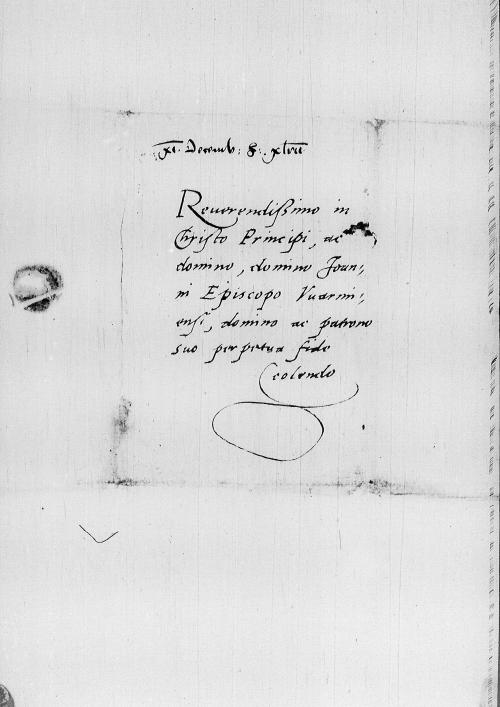 XI. Decemb: xlvii
Reverendissimo in
Christo Principi, ac
domino, domino Joan,,
ni Episcopo Vuarmi,,
ensi, domino ac patrono
suo perpetua fide
colendo